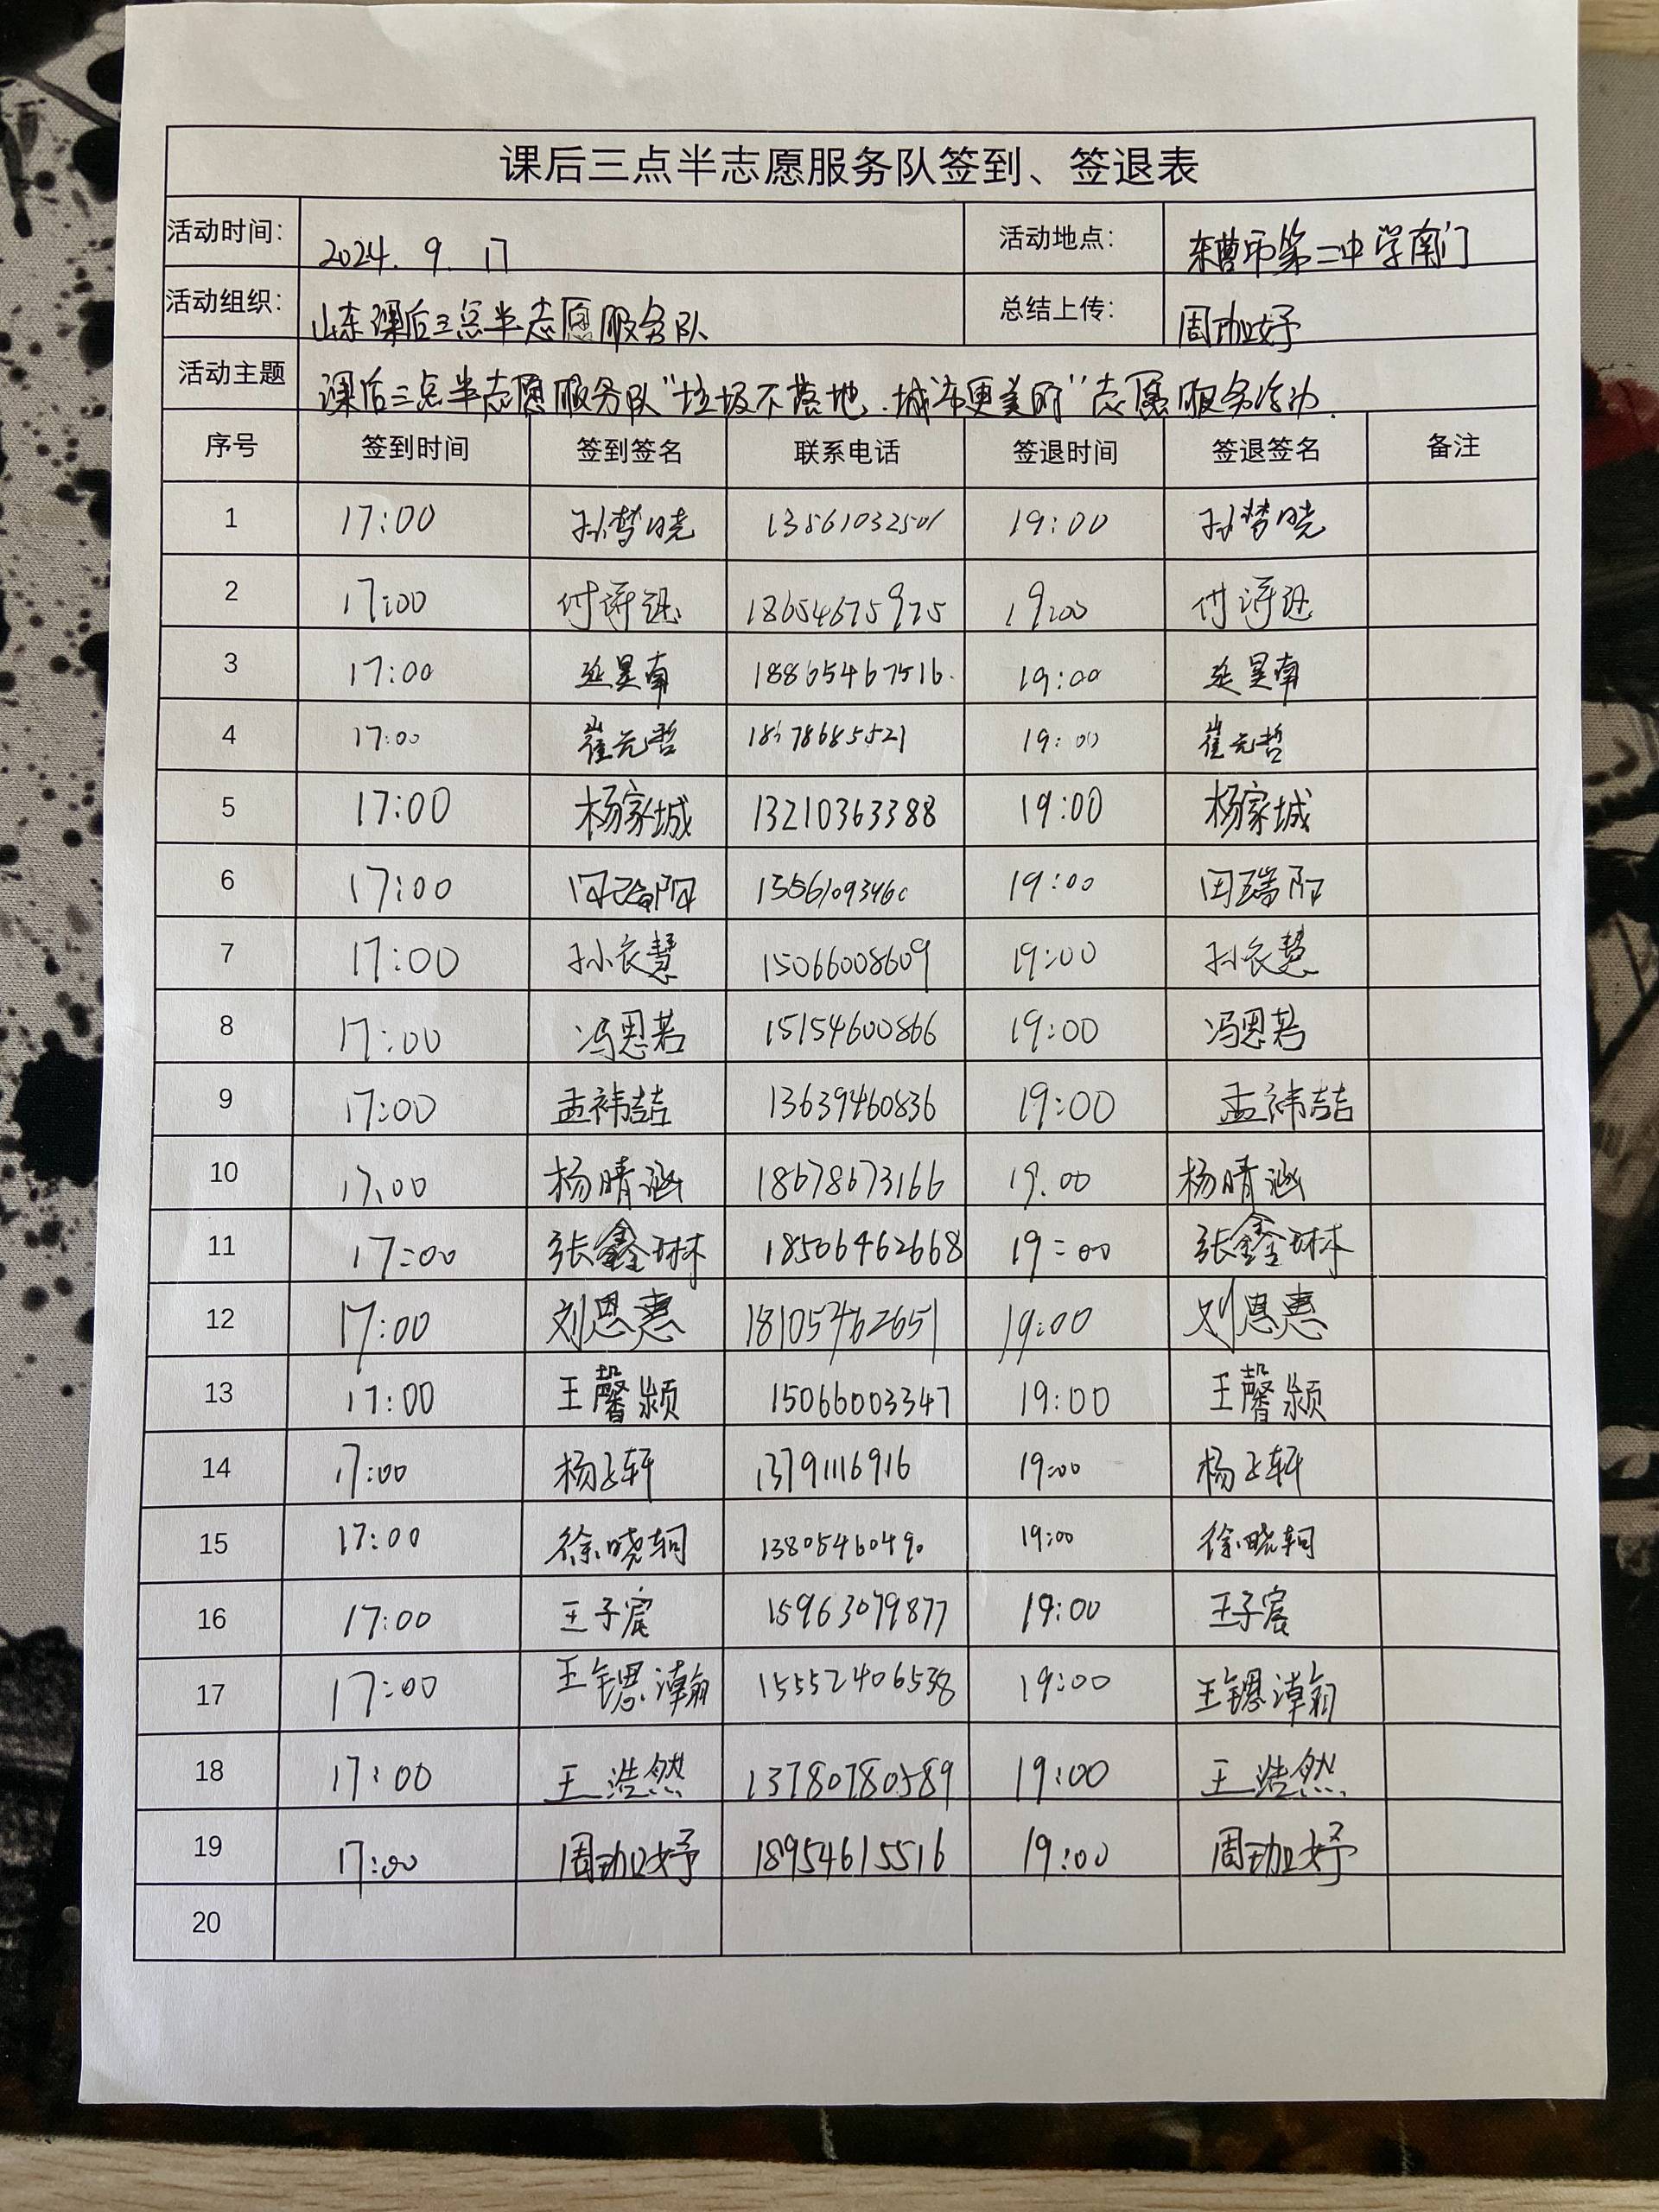 课后三点半志愿服务队签到、签退表
活动时间: 2024. 9. 17 活动地点: 东营市第二中学南门
活动组织: 山东课后三点半志愿服务队 总结上传: 周劭妤
活动主题 课后三点半志愿服务队“垃圾不落地.城市更美丽”志愿服务活动.
序号 签到时间 签到签名 联系电话 签退时间 签退签名 备注
1 17:00 孙梦晓 13561032501 19:00 孙梦晓
2 17:00 付诗 18654675975 19:00 付诗
3 17:00 延昊南 18865467516. 19:00 延昊南
4 17:00 崔元哲 19:00 崔元哲
5 17:00 杨家城 13210363388 19:00 杨家城
6 17:00 19:00 田瑞阳
7 17:00 孙衣慧 15066008609 19:00 孙衣慧
8 17:00 冯恩若 15154600866 19:00 冯恩若
9 17:00 孟祎喆 13639460836 19:00 孟祎喆
10 17:00 杨晴涵 18678673166 19:00 杨晴涵
11 17:00 张鑫琳 18506462668 19:00 张鑫琳
12 17:00 刘恩惠 18105462651 19:00 刘恩惠
13 17:00 王馨颍 15066003347 19:00 王馨颍
14 17:00 杨子轩 13791116916 19:00 杨子轩
15 17:00 徐晓轲 13805460490 19:00 徐晓轲
16 17:00 王子宸 15963079877 19:00 王子宸
17 17:00 王锶瀚 15552406538 19:00 王锶瀚
18 17:00 王浩然 13780780589 19:00 王浩然
19 17:00 周劭妤 18954615516 19:00 周劭妤
20